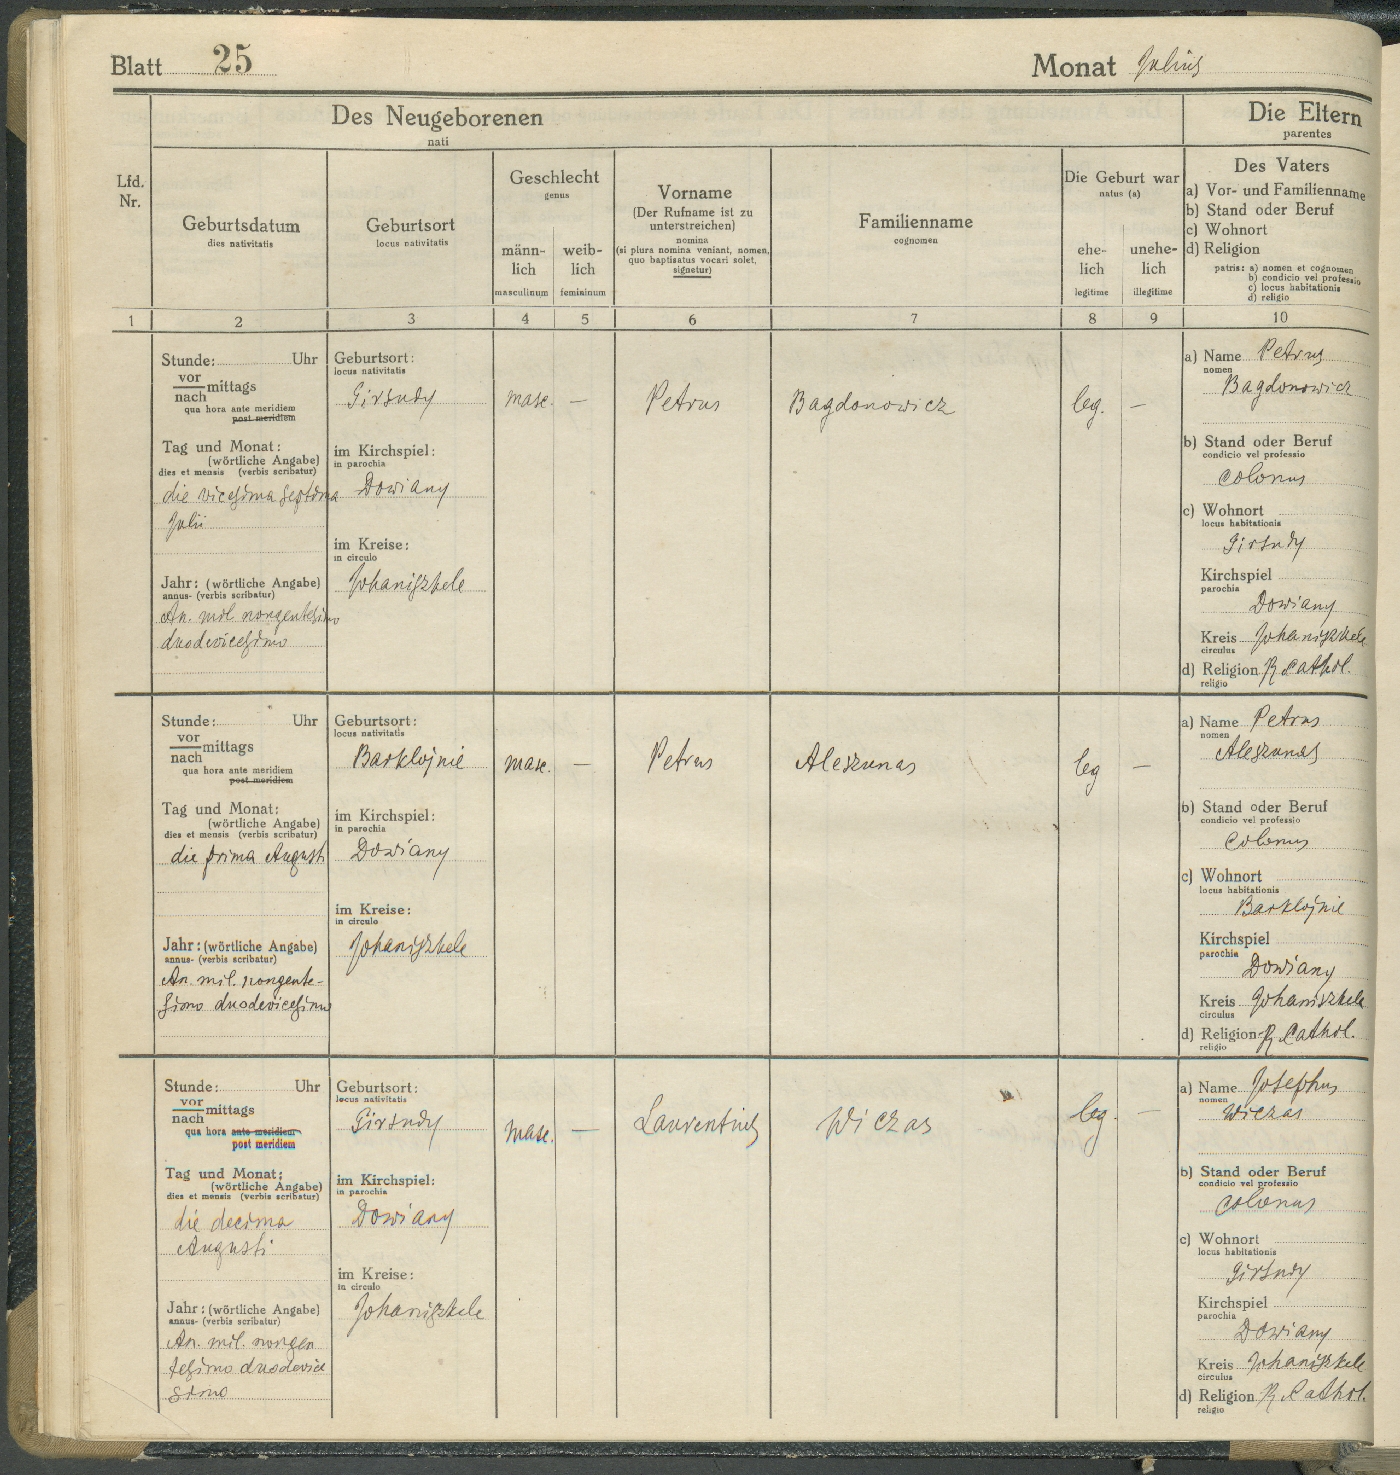 Blatt 25
Monat Julius
Des Neugeborenen
nati
Die Eltern
parentes
Lfd.
Nr.
Geburtsdatum
dies nativitatis
Geburtsort
locus nativitatis
Geschlecht
genus
männ-
lich
masculinum
weib-
lich
femininum
Vorname
(Der Rufname ist zu
unterstreichen)
nomina
(si plura nomina veniant, nomen,
quo baptisatus vocari solet,
signetur)
Familienname
cognomen
Die Geburt war
natus (a)
ehe-
lich
legitime
unehe-
lich
illegitime
Des Vaters
a) Vor- und Familienname
b) Stand oder Beruf
c) Wohnort
d) Religion
patris: a) nomen et cognomen
b) condicio vel professio
c) locus habitationis
d) religio
1 2 3 4 5 6 7 8 9 10
Stunde: Uhr
vor
nach mittags
qua hora ante meridiem
post meridiem
Tag und Monat:
(wörtliche Angabe)
dies et mensis (verbis scribatur)
die vicesima septima
Julii
Jahr: (wörtliche Angabe)
annus- (verbis scribatur)
An. mil. nongentesimo
duodevicesimo
Geburtsort:
locus nativitatis
Girsudy
im Kirchspiel:
in parochia
Dowiany
im Kreise:
in circulo
Johaniszkele
masc. —
Petrus
Bagdonowicz
leg. —
a) Name Petrus
nomen
Bagdonowicz
b) Stand oder Beruf
condicio vel professio
Colonus
c) Wohnort
locus habitationis
Girsudy
Kirchspiel
parochia
Dowiany
Kreis Johaniszkele
circulus
d) Religion R. Cathol.
religio
Stunde: Uhr
vor
nach mittags
qua hora ante meridiem
post meridiem
Tag und Monat:
(wörtliche Angabe)
dies et mensis (verbis scribatur)
die prima Augusti
Jahr: (wörtliche Angabe)
annus- (verbis scribatur)
An. mil. nongente-
simo duodevicesimo
Geburtsort:
locus nativitatis
Barklojnie
im Kirchspiel:
in parochia
Dowiany
im Kreise:
in circulo
Johaniszkele
masc. —
Petrus
Aleszunas
leg —
a) Name Petrus
nomen
Aleszunas
b) Stand oder Beruf
condicio vel professio
Colonus
c) Wohnort
locus habitationis
Barklojnie
Kirchspiel
parochia
Dowiany
Kreis Johaniszkele
circulus
d) Religion R. Cathol.
religio
Stunde: Uhr
vor
nach mittags
qua hora ante meridiem
post meridiem
Tag und Monat:
(wörtliche Angabe)
dies et mensis (verbis scribatur)
die decima
Augusti
Jahr: (wörtliche Angabe)
annus- (verbis scribatur)
An. mil. nongen
tesimo duodevice
simo
Geburtsort:
locus nativitatis
Girsudy
im Kirchspiel:
in parochia
Dowiany
im Kreise:
in circulo
Johaniszkele
masc. —
Laurentius
Wiczas
leg. —
a) Name Josephus
nomen
Wiczas
b) Stand oder Beruf
condicio vel professio
Colonus
c) Wohnort
locus habitationis
Girsudy
Kirchspiel
parochia
Dowiany
Kreis Johaniszkele
circulus
d) Religion R. Cathol.
religio